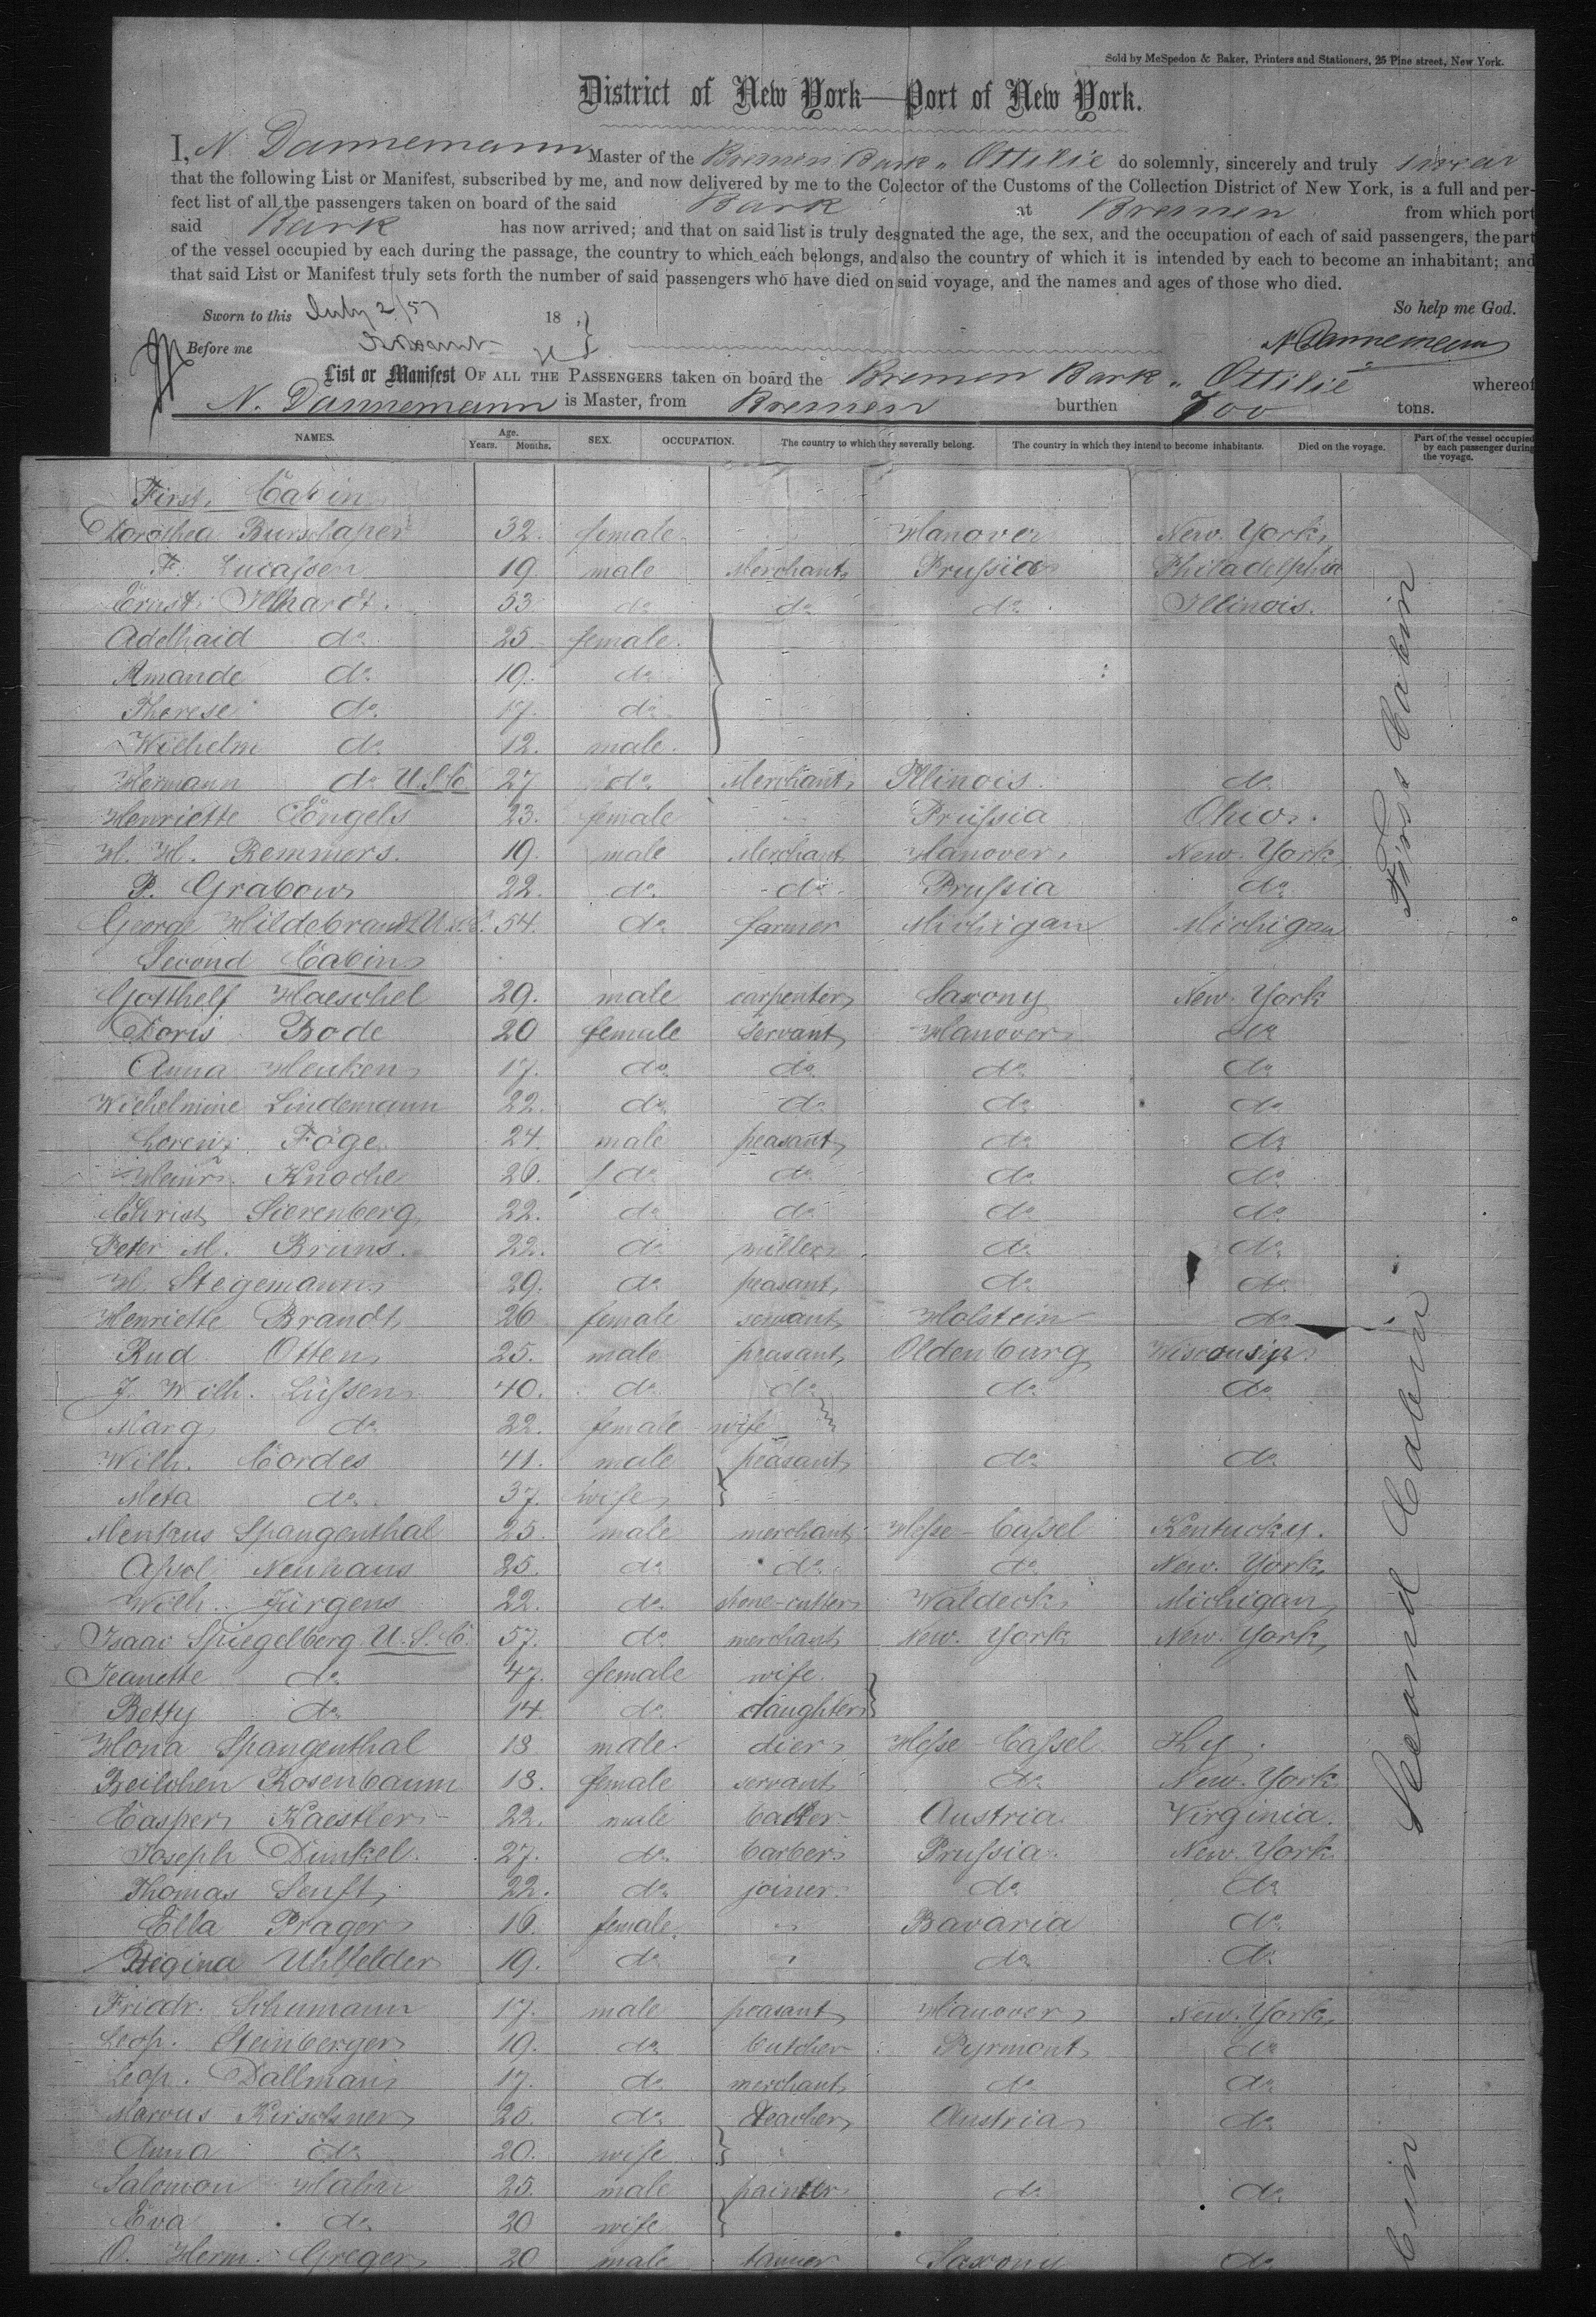 Sold by McSpedon & Baker, Printers and Stationers, 25 Pine street, New York.
District of New York—Port of New York.
I, N. Dannemann Master of the Bremen Bark "Ottilie do solemnly, sincerely and truly swear
that the following List or Manifest, subscribed by me, and now delivered by me to the Colector of the Customs of the Collection District of New York, is a full and per-
fect list of all the passengers taken on board of the said Bark at Bremen from which port
said Bark has now arrived; and that on said list is truly desgnated the age, the sex, and the occupation of each of said passengers, the part
of the vessel occupied by each during the passage, the country to which each belongs, and also the country of which it is intended by each to become an inhabitant; and
that said List or Manifest truly sets forth the number of said passengers who have died on said voyage, and the names and ages of those who died.
So help me God.
Sworn to this July 2/57 18
Before me
N Dannemann
List or Manifest OF ALL THE PASSENGERS taken on board the Bremen Bark "Ottilie whereof
N. Dannemann is Master, from Bremen burthen 700 tons.
NAMES. Age. Years. Months. SEX. OCCUPATION. The country to which they severally belong. The country in which they intend to become inhabitants. Died on the voyage. Part of the vessel occupied by each passenger during the voyage.
First Cabin
Dorothea Burschaper 32. female Hanover New York
F. Lucassen 19 male Merchant Prussia Philadelphia
Ernst Illhardt. 53 do do do Illinois.
Adelhaid do 25 female.
Amande do 19. do
Therese do 17. do
Wilhelm do 12. male.
Hermann do U.S.C. 27 do Merchant Illinois. do
Henriette Engels 23. female Prussia Ohio.
H. H. Remmers. 19. male Merchant Hanover New York
P. Grabow 22. do do Prussia do
George Hildebrandt U.S.C. 54. do farmer Michigan Michigan
Second Cabin
Gotthelf Haeschel 29. male carpenter Saxony New York
Doris Bode 20 female servant Hanover do
Anna Henken 17. do do do do
Wilhelmine Lindemann 22. do do do do
Lorenz Föge 24. male peasant do do
Heinr. Knoche 26. do do do do
Christ Sierenberg 22. do do do do
Peter M. Bruns. 22. do miller do do
H. Stegemann 29. do peasant do do
Henriette Brandt 26 female servant Holstein do
Rud Otten 25. male peasant Oldenburg Wisconsin
J. Wilh. Lüssen 40. do do do do
Marg do 22. female wife
Wilh. Cordes 41. male peasant do do
Meta do 37. wife
Menkus Spangenthal 25. male merchant Hesse-Cassel Kentucky.
Neuhaus 25. do do do New York
Wilh. Jürgens 22. do stone-cutter Waldeck Michigan
Isaac Spiegelberg U.S.C. 57. do merchant New York New York
Jeanette do 47. female wife.
Betty do 14. do daughter
Hona Spangenthal 18 male. dier Hesse-Cassel Ky.
Beilchen Rosenbaum 18. female servant do New York
Casper Kaestler 22. male Austria Virginia.
Joseph Dunkel. 27. do barber Prussia. New York
Thomas Senft 22. do joiner. do do
Ella Prager 16. female " Bavaria do
Regina Uhlfelder 19. do " do do
Friedr. Schumann 17. male peasant Hanover New York
Leop. Steinberger 19. do butcher Pyrmont do
Leop. Dallman 17. do merchant do do
Marcus Kirschner 26. do teacher Austria do
Anna do 20. wife
Salomon Hahn 25. male painter do do
Eva do 20 wife
O. Herm. Greger 20 male tanner Saxony do
First Cabin
Second Cabin